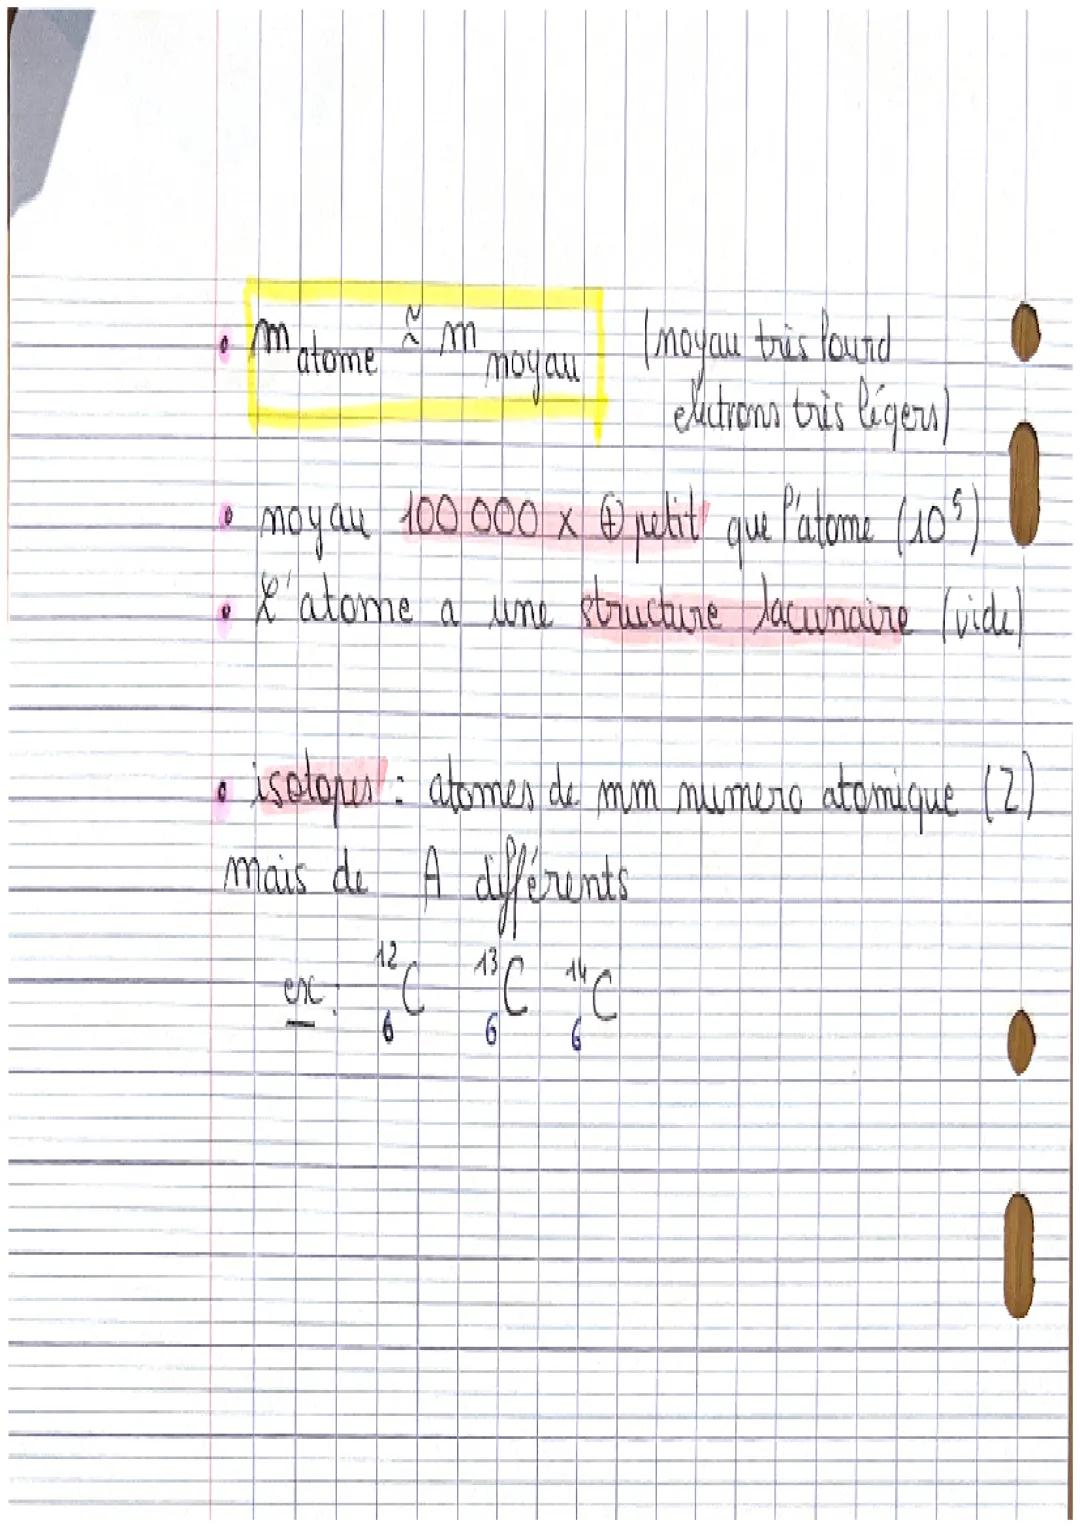 • m atome ≈ m noyau (noyau très lourd
electrons très légers)
• noyau 100 000 x ⊕ petit que l'atome (10⁵)
• L'atome a une structure lacunaire (vide)
• isotopes : atomes de mm numero atomique (Z)
mais de A différents
ex : ¹²₆C ¹³₆C ¹⁴₆C